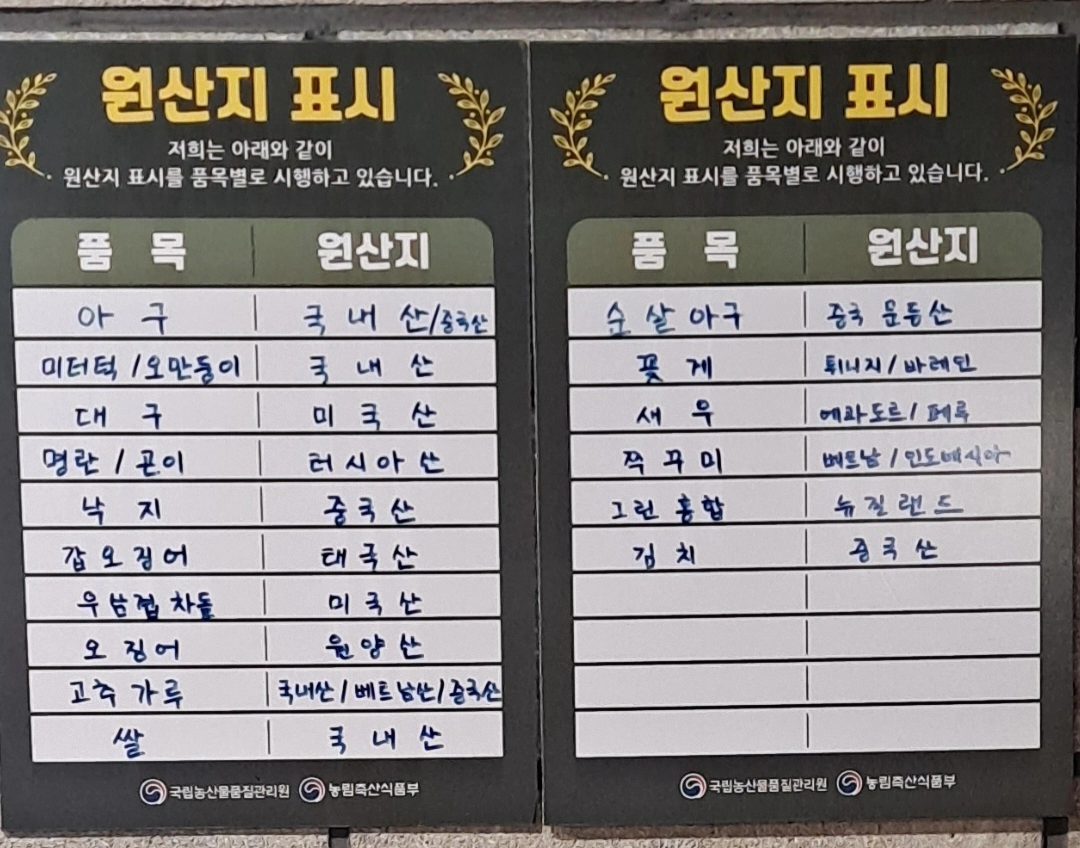 원산지 표시
저희는 아래와 같이
원산지 표시를 품목별로 시행하고 있습니다.
품 목 원산지
아 구 국 내 산/중국산
미더덕 /오만둥이 국 내 산
대 구 미 국 산
명란 / 곤이 러시아 산
낙 지 중국산
갑오징어 태국산
우삼겹 차돌 미국산
오징어 원양산
고추가루 국내산/베트남산/중국산
쌀 국 내 산
국립농산물품질관리원 농림축산식품부
원산지 표시
저희는 아래와 같이
원산지 표시를 품목별로 시행하고 있습니다.
품 목 원산지
순살아구 중국 문등산
꽃 게 튀니지/바레인
새 우 에콰도르/페루
쭈꾸미 베트남/인도네시아
그린 홍합 뉴질랜드
김 치 중국산
국립농산물품질관리원 농림축산식품부